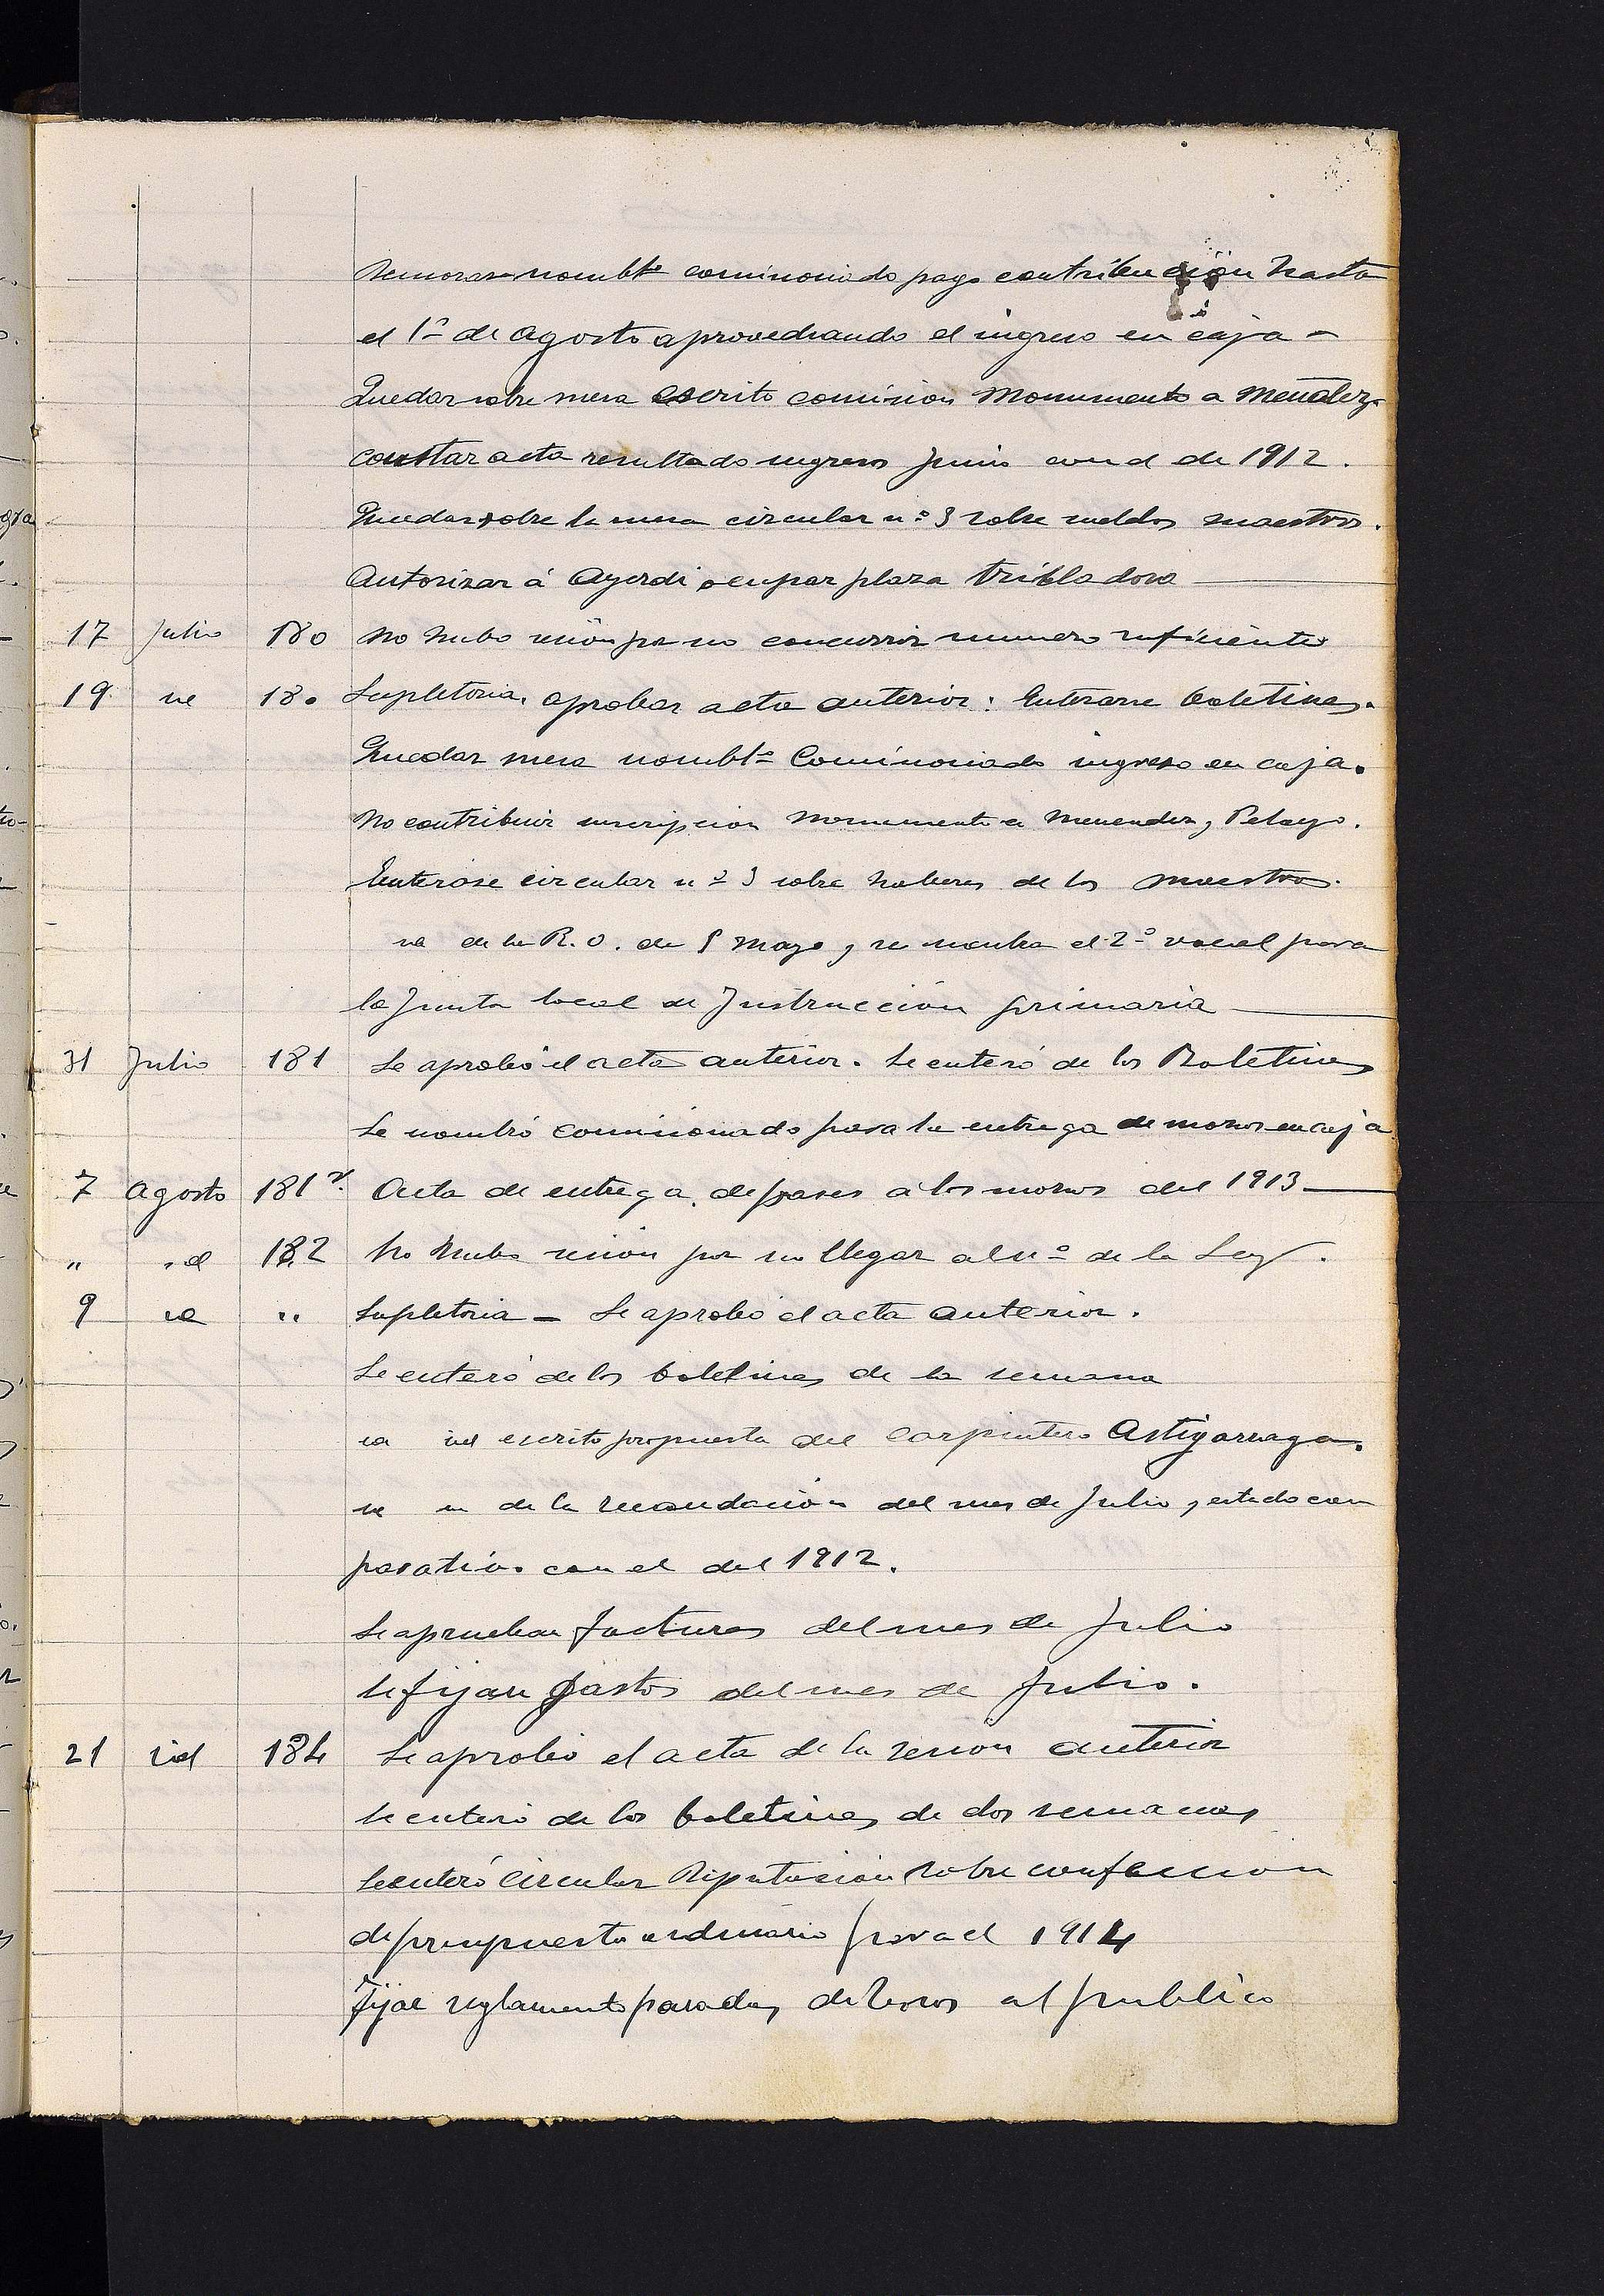 nombto comisionado pago contribución hasta
el 1º de Agosto aprovechando el ingreso en caja =
Quedar sobre mesa escrito comision Monumento a Menéndez.
Constar acta resultado ingresos Junio con el de 1912.
Quedar sobre la mesa circular nº 3 sobre sueldos maestros.
Autorizar á Ayerdi ocupar plaza trilladora
17 Julio 180 No hubo sesión por no concurrir numero suficiente
19 id 180 Supletoria. aprobar acta anterior: Enterarse boletines.
Quedar mesa nombto Comisionado ingreso en caja.
No contribuir suscripcion monumento a Menendez y Pelayo.
Enteróse circular nº 3 sobre haberes de los maestros.
id de la R.O. de 5 Mayo y se nombra el 2º vocal para
la Junta local de Instrucción primaria
31 Julio 181 Se aprobó el acta anterior. Se enteró de los Boletines
Se nombró comisionado para la entrega de mozos en caja
7 Agosto 181 Acta de entrega de pases á los mozos del 1913
" id 182 No hubo sesion por no llegar al nº de la Ley.
9 id " Supletoria - Se aprobó el acta anterior.
Se enteró de los boletines de la semana
id id escrito propuesta del carpintero Astigarraga.
id id de la recaudación del mes de Julio y estado com
parativo con el del 1912.
Se aprueban facturas del mes de Julio
Se fijan gastos del mes de Julio.
21 id 184 Se aprobó el acta de la sesion anterior
Se enteró de los boletines de dos semanas
Se enteró circular Diputación sobre confeccion
de presupuesto ordinario para el 1914
Fijar reglamento paradas de toros al publico